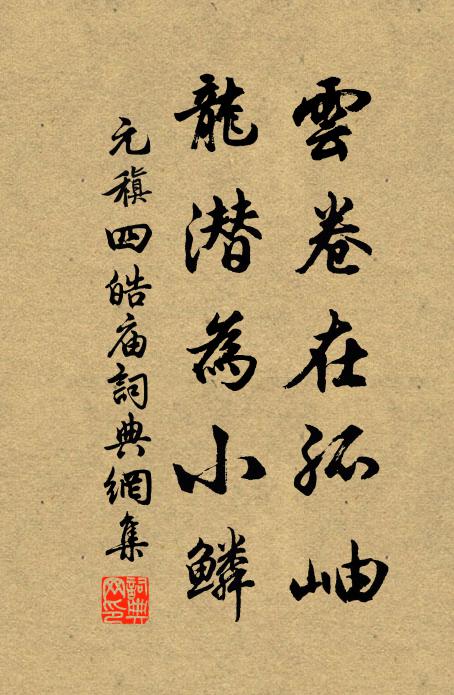 雲卷在孤岫
龍潛為小鱗
元稹四皓庙詞典網集
詞典网印